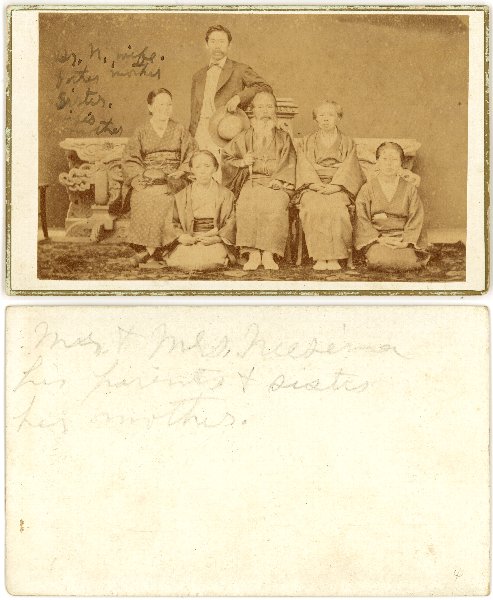 Mr. N. wife.
father mother
Sister.
his
mother
Mr & Mrs Neesima
his parents & sister
her mother.
4